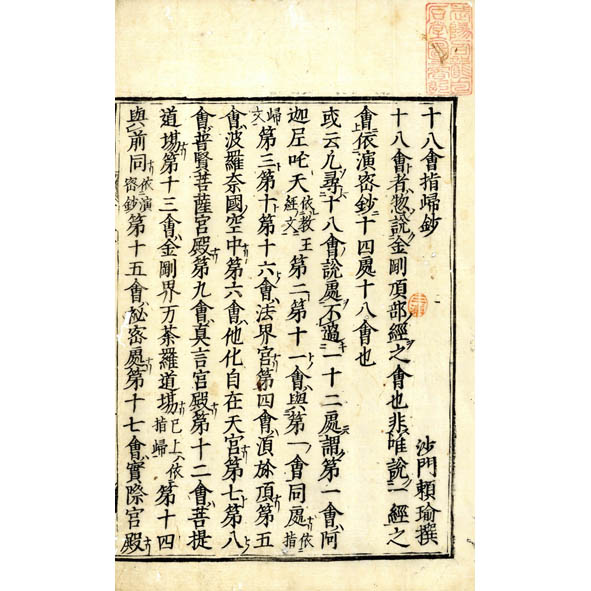 十八會指歸鈔
沙門頼瑜撰
十八會者惣說金剛頂部經之會也非唯說一經之
會依演密鈔十四處十八會也
或云凡尋十八會說處不過一十二處謂第一會阿
迦尼吒天依教王經文第二第十一會與第一會同處依指
歸文第三第十第十六會法界宮第四會須弥頂第五
會波羅奈國空中第六會他化自在天宮第七第八
會普賢菩薩宮殿第九會真言宮殿第十二會菩提
道場第十三會金剛界万荼羅道場已上依指歸第十四
與前同依演密鈔第十五會秘密處第十七會實際宮殿